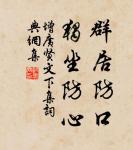 群居防口
獨坐防心
增廣賢文下集詞
與綢集